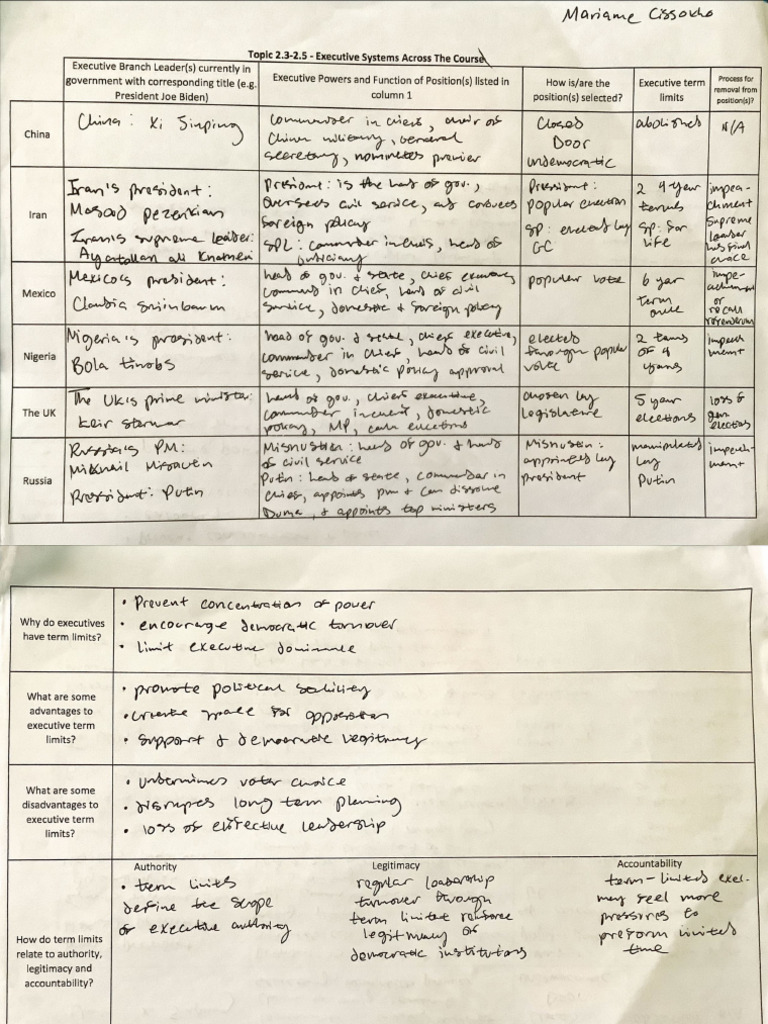 Mariame Cissokho
Topic 2.3-2.5 - Executive Systems Across The Course
Executive Branch Leader(s) currently in
government with corresponding title (e.g.
President Joe Biden)
Executive Powers and Function of Position(s) listed in
column 1
How is/are the
position(s) selected?
Executive term
limits
Process for
removal from
position(s)?
China
China : Xi Jinping
commander in chief, chair of
China military, general
secretary, nominates premier
Closed
Door
undemocratic
abolished
N/A
Iran
Iran's president :
Masoud Pezeshkian
Iran's supreme leader:
Ayatollah Ali Khatmeni
President : is the head of gov.,
Oversees civil service, and conduces
foreign policy
SPL : commander in chief, head of
judiciary
President :
popular election
SP : elected by
GC
2 4-year
terms
SP : for
life
impea-
chment
Supreme
leader
has final
choice
Mexico
Mexico's president :
Claudia Sheinbaum
head of gov. & state, chief executive
command in chief, head of civil
service, domestic & foreign policy
popular vote
6 year
term
one
impe-
achment
or
recall
referendum
Nigeria
Nigeria's president :
Bola Tinubu
head of gov. & state, chief executive,
commander in chief, head of civil
service, domestic policy approval
elected
through popular
vote
2 terms
of 4
years
impeach
ment
The UK
The UK's prime minister:
Keir Starmer
head of gov., chief executive,
commander in chief, domestic
policy, MP, call elections
chosen by
legislature
5 year
elections
loss of
gen
elections
Russia
Russia's PM :
Mikhail Mishustin
President : Putin
Mishustin : head of gov. & head
of civil service
Putin : head of state, commander in
chief, appoints pm & can dissolve
Duma, & appoints top ministers
Mishustin :
appointed by
president
manipulated
by
Putin
impeach-
ment
Why do executives
have term limits?
• Prevent concentration of power
• encourage democratic turnover
• limit executive dominance
What are some
advantages to
executive term
limits?
• promote political stability
• create space for opposition
• support & democratic legitimacy
What are some
disadvantages to
executive term
limits?
• undermines voter choice
• disrupts long term planning
• loss of effective leadership
How do term limits
relate to authority,
legitimacy and
accountability?
Authority
• term limits
define the scope
of executive authority
Legitimacy
regular leadership
turnover through
term limited reinforce
legitimacy of
democratic institutions
Accountability
term-limited exec.
may feel more
pressures to
preform limited
time